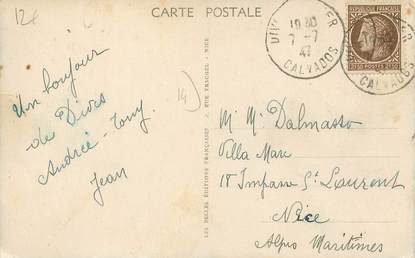 12€
CARTE POSTALE
19 30
7-7
47
CALVADOS
RÉPUBLIQUE FRANÇAISE
POSTES
CALVADOS
Un bonjour
de Dives
Andrée-Tony.
Jean
14
LES BELLES ÉDITIONS FRANÇAISES
NICE
M M Dalmasso
Villa Marc
18 Impasse St Laurent
Nice
Alpes Maritimes